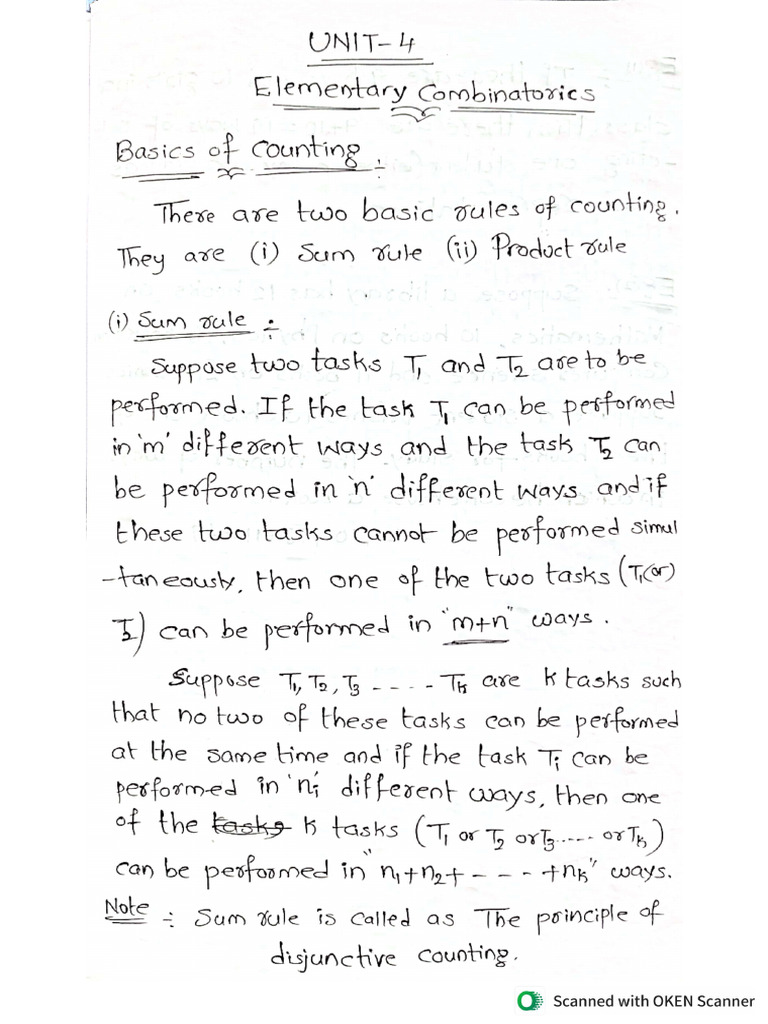 UNIT-4
Elementary Combinatorics
Basics of Counting :-
There are two basic rules of counting.
They are (i) Sum rule (ii) Product rule
(i) Sum rule :-
Suppose two tasks T1 and T2 are to be
performed. If the task T1 can be performed
in 'm' different ways and the task T2 can
be performed in 'n' different ways and if
these two tasks cannot be performed simul
-taneously, then one of the two tasks (T1(or)
T2) can be performed in "m+n" ways.
Suppose T1, T2, T3 ----- Tk are k tasks such
that no two of these tasks can be performed
at the same time and if the task Ti can be
performed in 'ni' different ways, then one
of the tasks k tasks (T1 or T2 or T3 ..... or Tk)
can be performed in "n1+n2+ - - - +nk" ways.
Note :- Sum rule is called as The principle of
disjunctive counting.
Scanned with OKEN Scanner